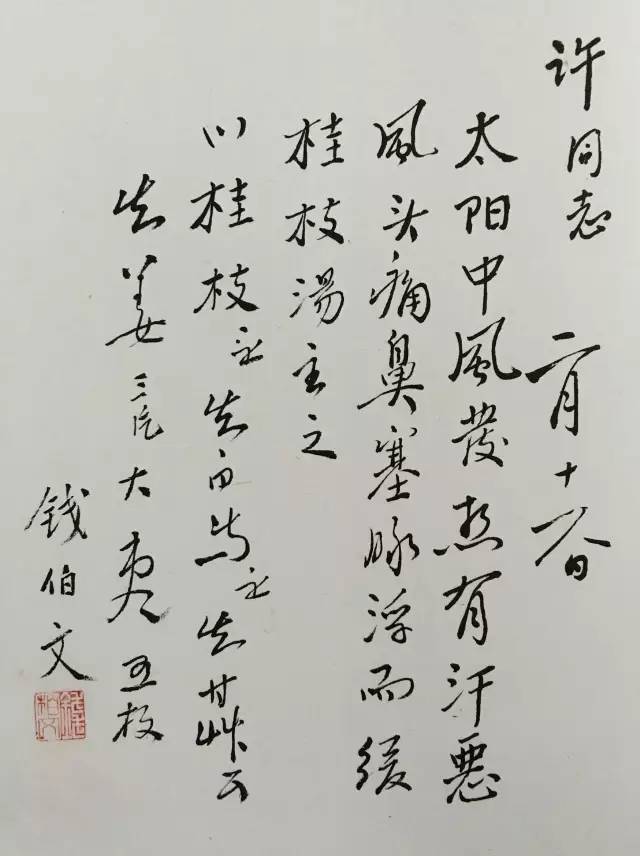 许同志 二月十日
太阳中風發热有汗惡
風头痛鼻塞脉浮而緩
桂枝湯主之
川桂枝生白芍生甘艸
生姜三片大枣五枚
钱伯文